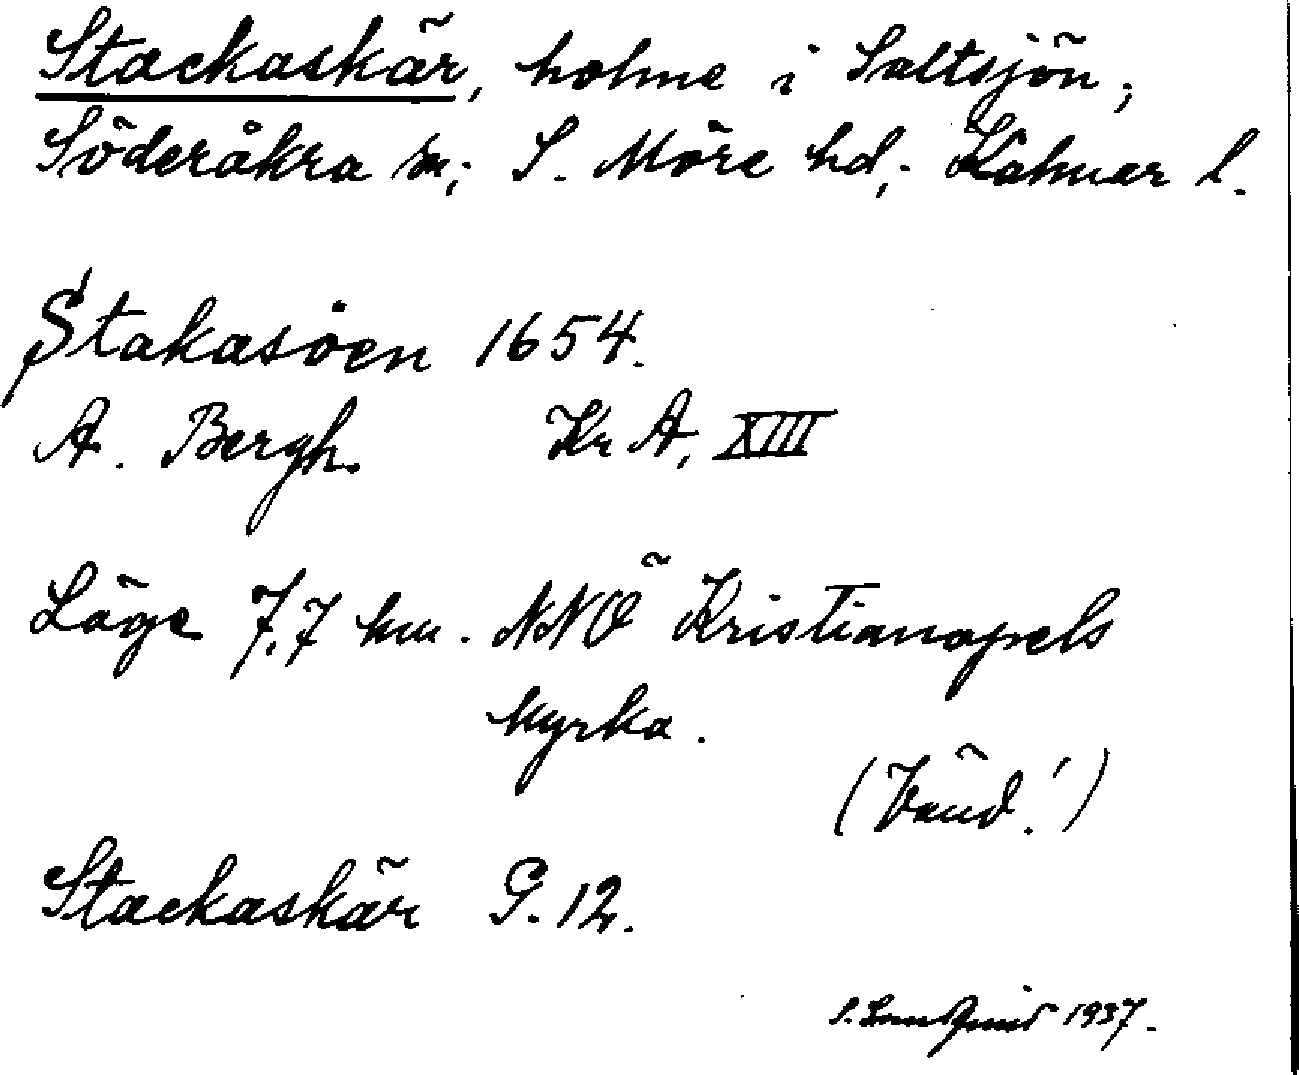 Stackaskär, holme i Saltsjön,
Söderåkra sn; S. Möre hd; Kalmar l.
Stakasöen 1654.
A. Bergh. Kr A, XIII
Läge 7,7 km. NNÖ Kristianopels
kyrka.
(Vänd!)
Stackaskär G. 12.
S. 1937.